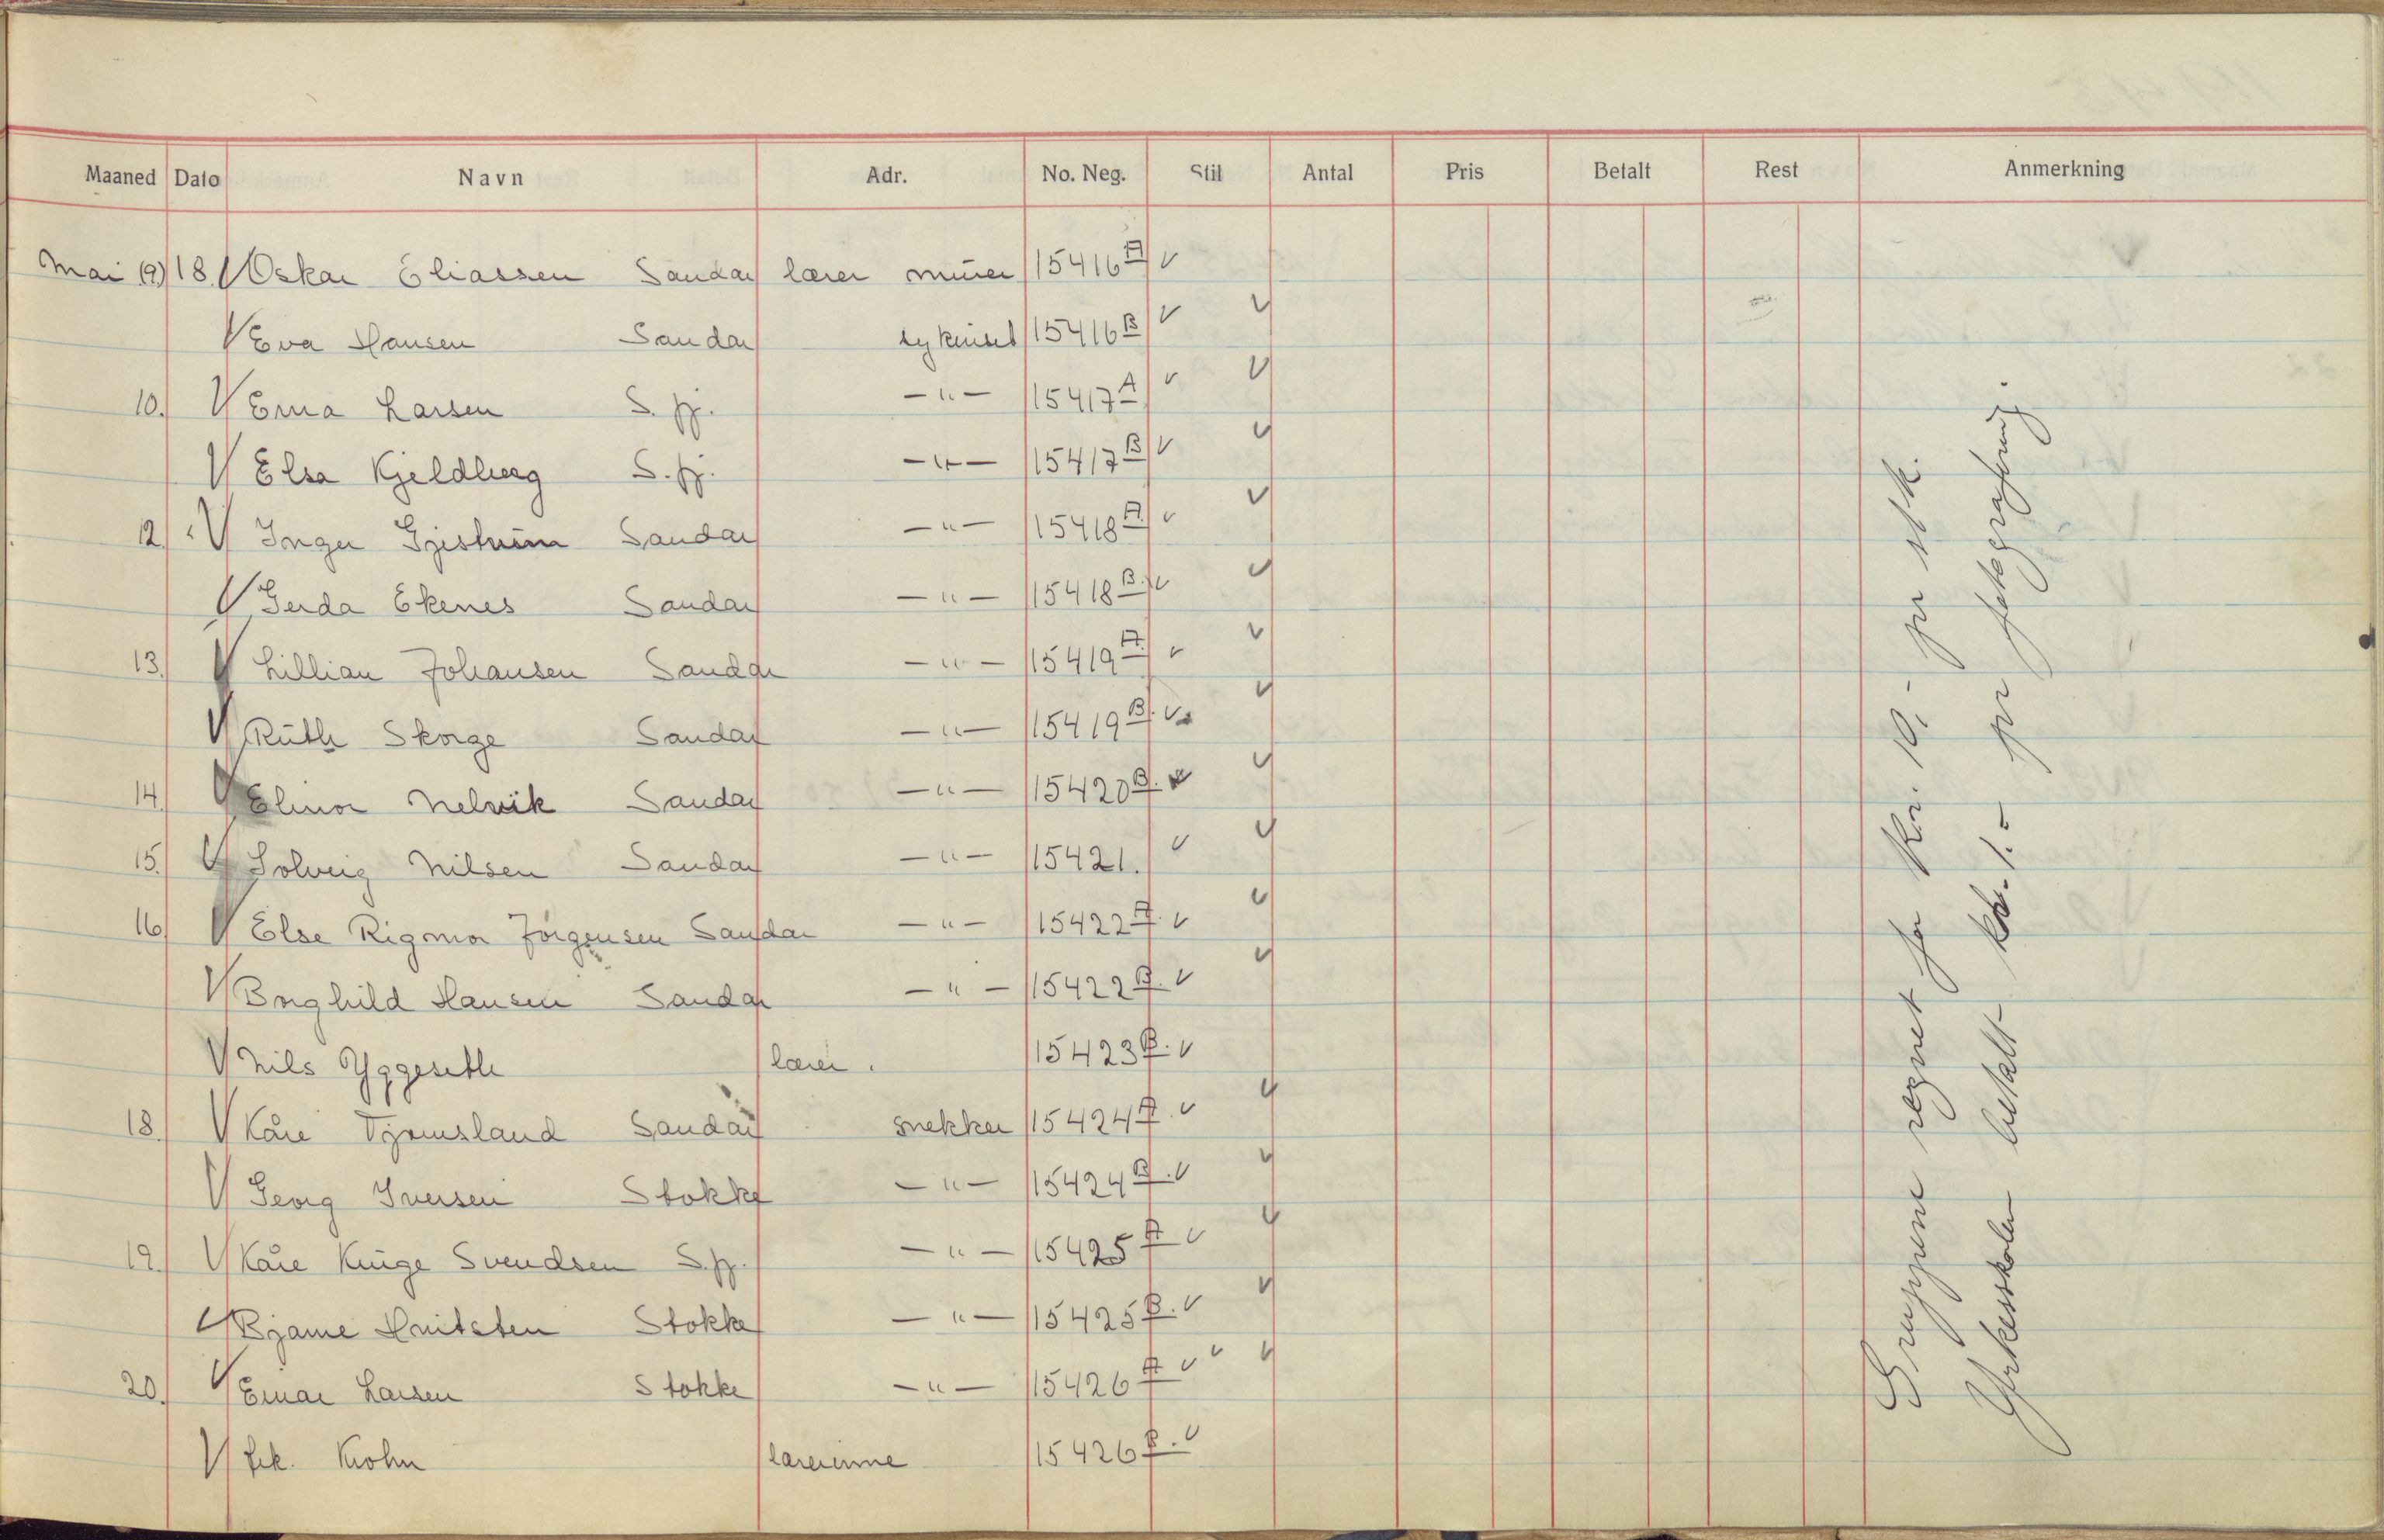 Maaned Dato Navn Adr. No. Neg. Stil Antal Pris Betalt Rest Anmerkning
Mai (9) 18. V Oskar Eliassen Sandar lærer murer 15416 A V
V Eva Hansen Sandar sykurset 15416 B V V
10. V Erna Larsen S. fj. —"— 15417 A V V
V Elsa Kjeldberg S. fj. —"— 15417 B V V
12. V Inger Gjistrum Sandar —"— 15418 A V V
V Gerda Ekenes Sandar —"— 15418 B. V V
13. V Lillian Johansen Sandar —"— 15419 A. V V
V Ruth Skorge Sandar —"— 15419 B. V. V
14. V Elinor Melvik Sandar —"— 15420 B. V V
15. V Solveig Nilsen Sandar —"— 15421. V V
16. V Else Rigmor Jörgensen Sandar —"— 15422 A. V V
V Borghild Hansen Sandar —"— 15422 B. V V
V Nils Yggeseth lærer. 15423 B. V
18. V Kåre Tjomsland Sandar snekker 15424 A. V V
V Georg Iversen Stokke —"— 15424 B. V V
19. V Kåre Svendsen S. fj. —"— 15425 A V V
V Bjarne Hvitsten Stokke —"— 15425 B. V V
20. V Einar Larsen Stokke —"— 15426 A V V V
V frk. Krohn lærerinne 15426 B. V
Gruppene regnet for Kr. 10,- pr stk.
Yrkesskolen betalt kr. 1.- pr fotografering.